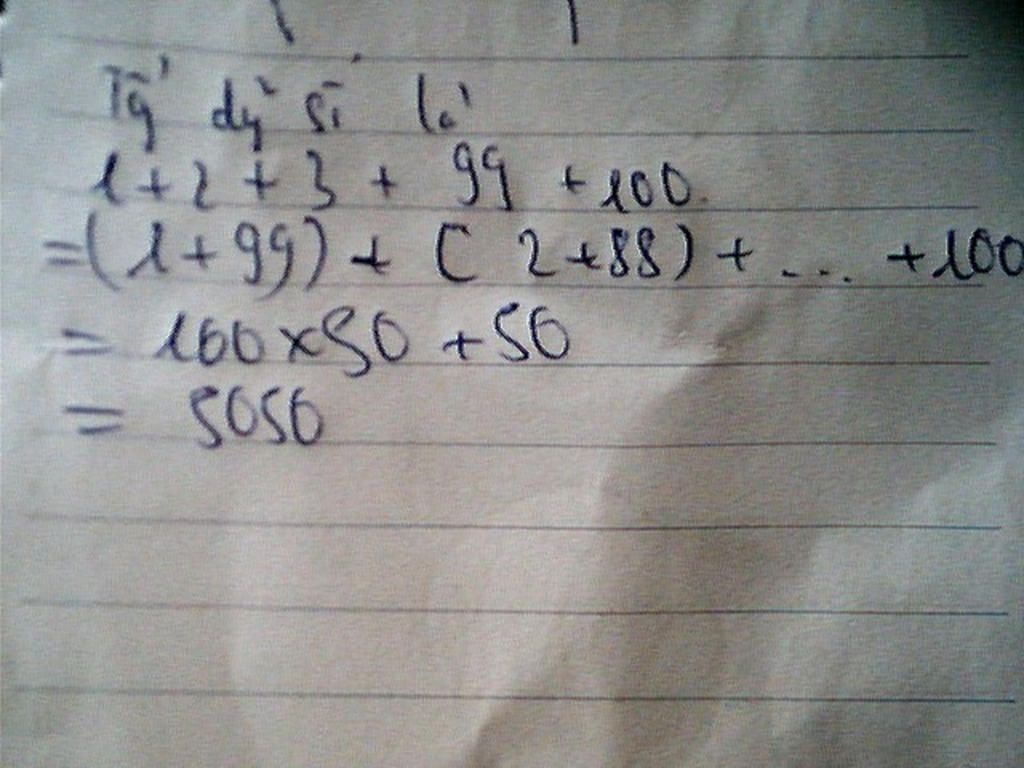 Tg dỹ sĩ là
1 + 2 + 3 + 99 + 100.
= (1 + 99) + ( 2 + 88) + .... + 100
= 100 x 50 + 50
= 5050